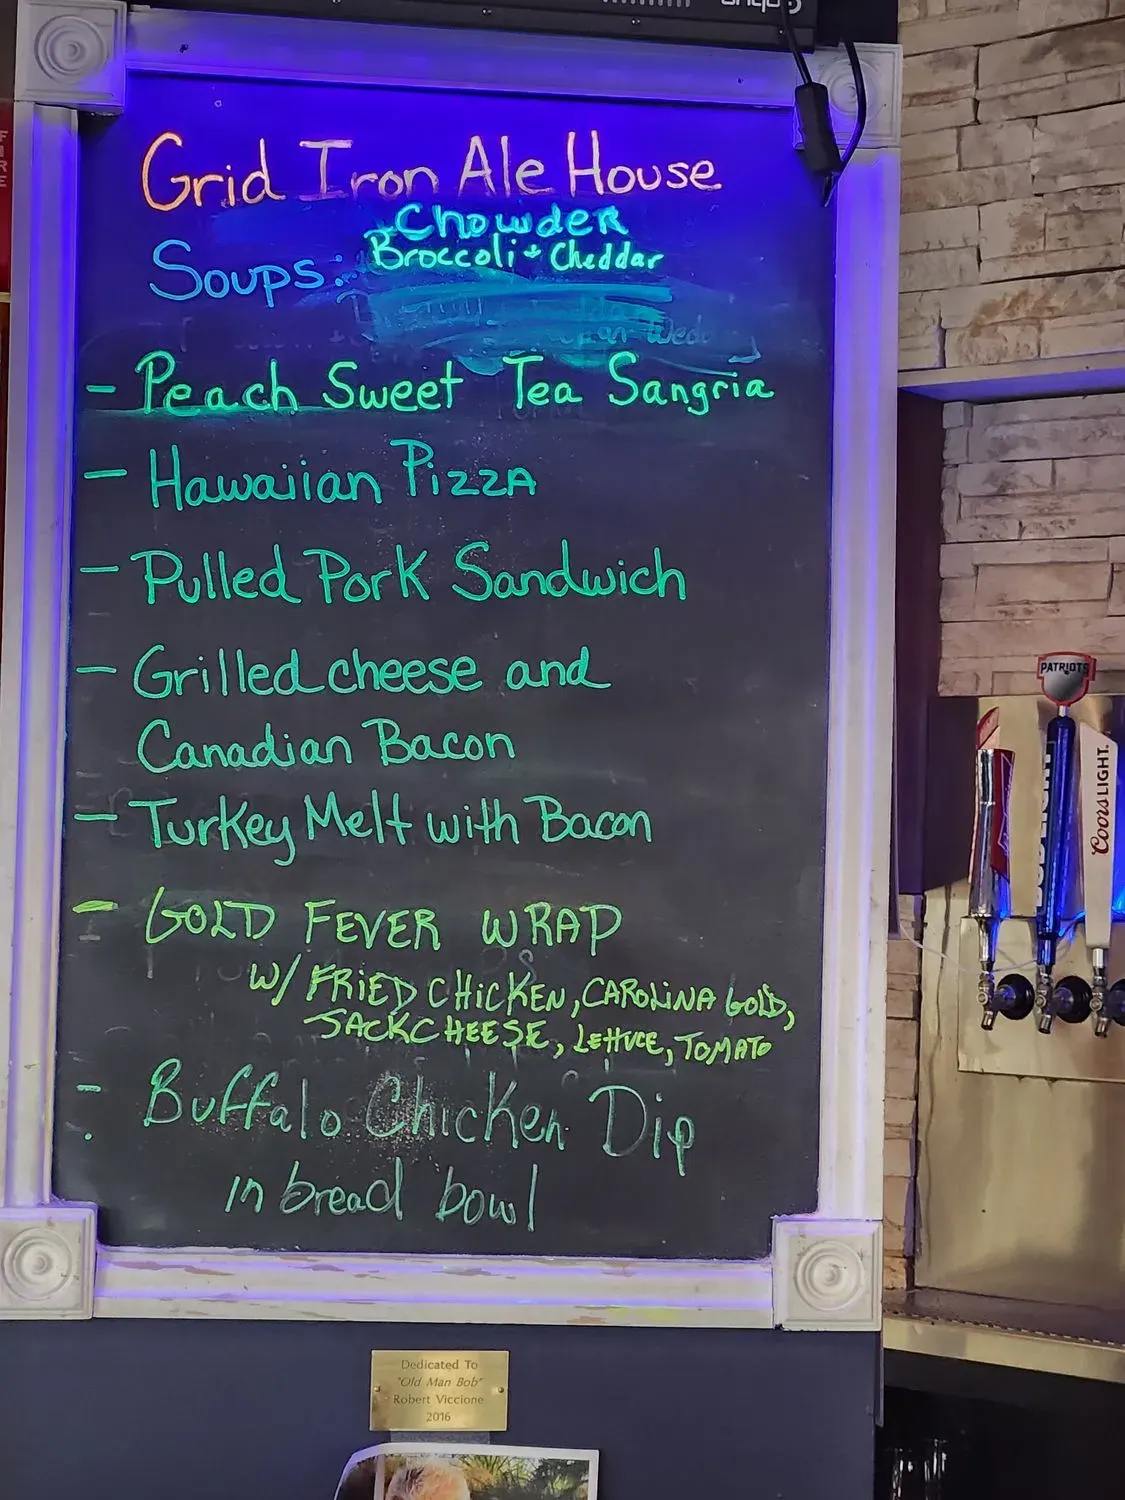 Grid Iron Ale House
Chowder
Soups: Broccoli + Cheddar
- Peach Sweet Tea Sangria
- Hawaiian Pizza
- Pulled Pork Sandwich
- Grilled cheese and
Canadian Bacon
- Turkey Melt with Bacon
- GOLD FEVER WRAP
W/ FRIED CHICKEN, CAROLINA GOLD,
JACKCHEESE, LETTUCE, TOMATO
- Buffalo Chicken Dip
in bread bowl
Dedicated To
"Old Man Bob"
Robert Viccione
2016
PATRIOTS
Coors LIGHT.